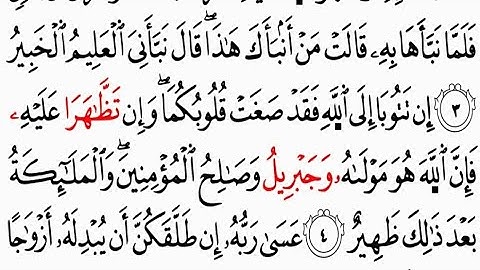 فَلَمَّا نَبَّأَهَا بِهِۦ قَالَتْ مَنْ أَنۢبَأَكَ هَٰذَا ۖ قَالَ نَبَّأَنِيَ ٱلْعَلِيمُ ٱلْخَبِيرُ
٣ إِن تَتُوبَا إِلَى ٱللَّهِ فَقَدْ صَغَتْ قُلُوبُكُمَا ۖ وَإِن تَظَّٰهَرَا عَلَيْهِ
فَإِنَّ ٱللَّهَ هُوَ مَوْلَىٰهُ وَجَبْرِيلُ وَصَٰلِحُ ٱلْمُؤْمِنِينَ ۖ وَٱلْمَلَٰٓئِكَةُ
بَعْدَ ذَٰلِكَ ظَهِيرٌ ٤ عَسَىٰ رَبُّهُۥٓ إِن طَلَّقَكُنَّ أَن يُبْدِلَهُۥٓ أَزْوَٰجًا